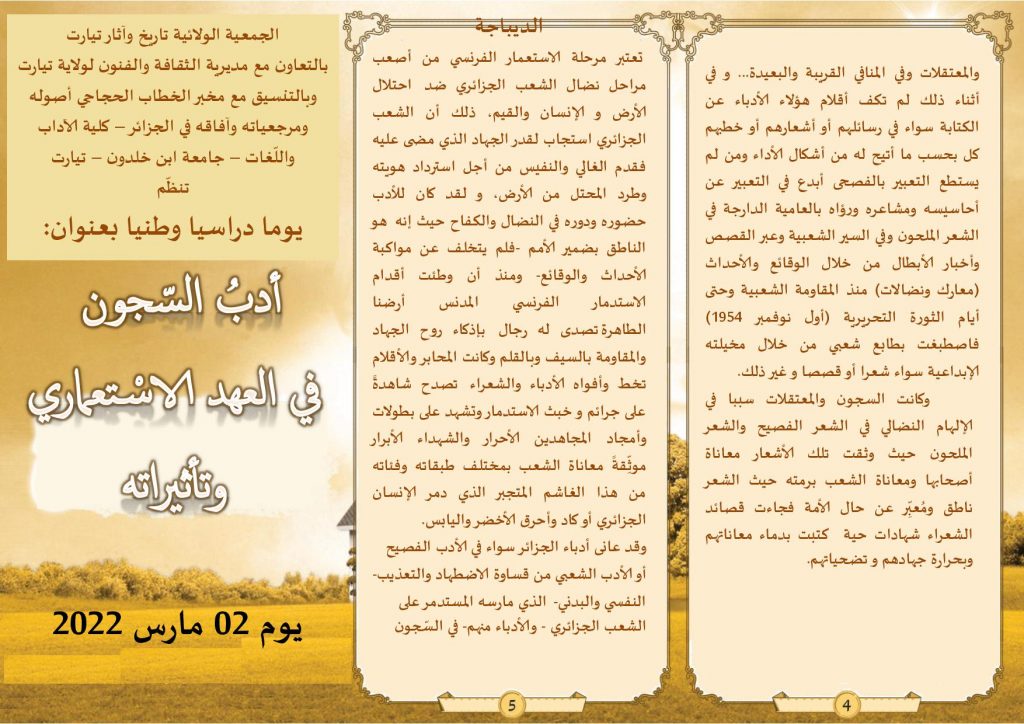 الجمعية الولائية تاريخ وآثار تيارت
بالتعاون مع مديرية الثقافة والفنون لولاية تيارت
وبالتنسيق مع مخبر الخطاب الحجاجي أصوله
ومرجعياته وآفاقه في الجزائر – كلية الآداب
واللّغات – جامعة ابن خلدون – تيارت
تنظّم
يوما دراسيا وطنيا بعنوان:
أدبُ السّجون
في العهد الاسْتعماري
وتأثيراته
يوم 02 مارس 2022
الديباجة
تعتبر مرحلة الاستعمار الفرنسي من أصعب
مراحل نضال الشعب الجزائري ضد احتلال
الأرض و الإنسان والقيم، ذلك أن الشعب
الجزائري استجاب لقدر الجهاد الذي مضى عليه
فقدم الغالي والنفيس من أجل استرداد هويته
وطرد المحتل من الأرض، و لقد كان للأدب
حضوره ودوره في النضال والكفاح حيث إنه هو
الناطق بضمير الأمم -فلم يتخلف عن مواكبة
الأحداث والوقائع- ومنذ أن وطئت أقدام
الاستدمار الفرنسي المدنس أرضنا
الطاهرة تصدى له رجال بإذكاء روح الجهاد
والمقاومة بالسيف وبالقلم وكانت المحابر والأقلام
تخط وأفواه الأدباء والشعراء تصدح شاهدةً
على جرائم و خبث الاستدمار وتشهد على بطولات
وأمجاد المجاهدين الأحرار والشهداء الأبرار
موثّقةً معاناة الشعب بمختلف طبقاته وفئاته
من هذا الغاشم المتجبر الذي دمر الإنسان
الجزائري أو كاد وأحرق الأخضر واليابس.
وقد عانى أدباء الجزائر سواء في الأدب الفصيح
أو الأدب الشعبي من قساوة الاضطهاد والتعذيب-
النفسي والبدني- الذي مارسه المستدمر على
الشعب الجزائري - والأدباء منهم- في السّجون
5
والمعتقلات وفي المنافي القريبة والبعيدة... و في
أثناء ذلك لم تكف أقلام هؤلاء الأدباء عن
الكتابة سواء في رسائلهم أو أشعارهم أو خطبهم
كل بحسب ما أتيح له من أشكال الأداء ومن لم
يستطع التعبير بالفصحى أبدع في التعبير عن
أحاسيسه ومشاعره ورؤاه بالعامية الدارجة في
الشعر الملحون وفي السير الشعبية وعبر القصص
وأخبار الأبطال من خلال الوقائع والأحداث
(معارك ونضالات) منذ المقاومة الشعبية وحتى
أيام الثورة التحريرية (أول نوفمبر 1954)
فاصطبغت بطابع شعبي من خلال مخيلته
الإبداعية سواء شعرا أو قصصا و غير ذلك.
وكانت السجون والمعتقلات سببا في
الإلهام النضالي في الشعر الفصيح والشعر
الملحون حيث وثقت تلك الأشعار معاناة
أصحابها ومعاناة الشعب برمته حيث الشعر
ناطق ومُعبّر عن حال الأمة فجاءت قصائد
الشعراء شهادات حية كتبت بدماء معاناتهم
وبحرارة جهادهم و تضحياتهم.
4